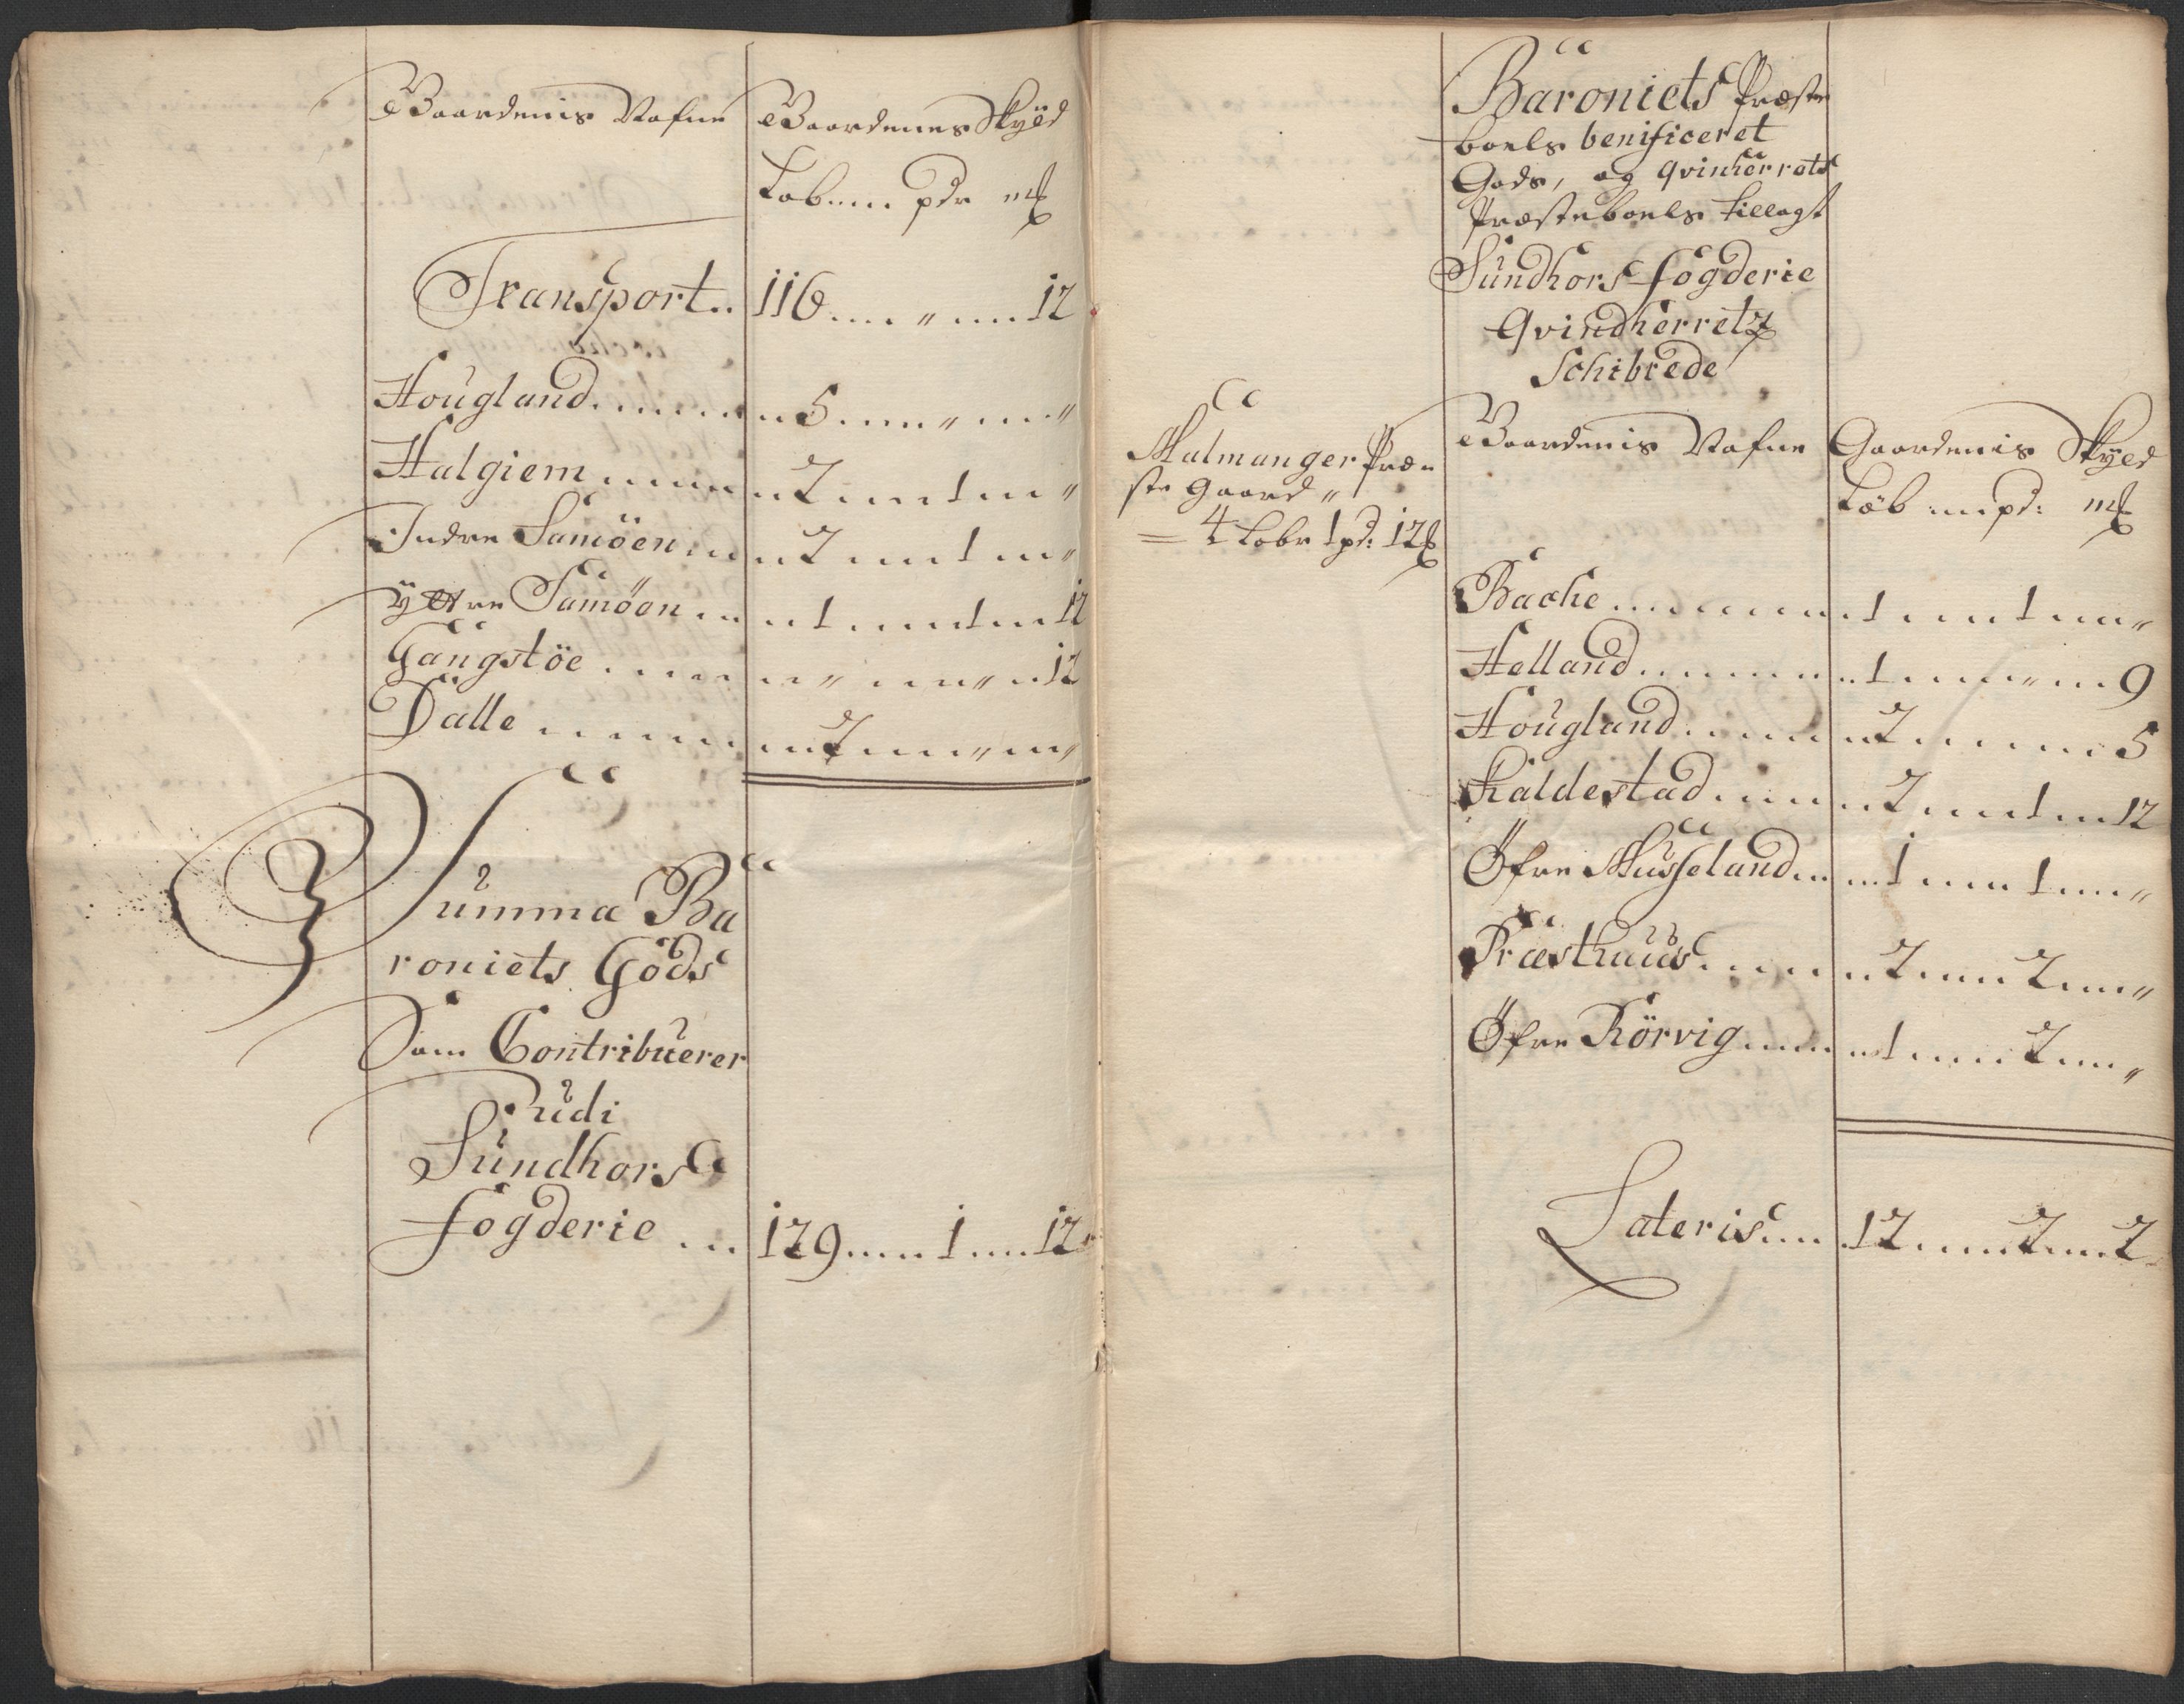 Gaardenis Nafne Gaardenes Skyld
Løb .... pdr mk
Transport .. 116 .... " .... 12
Hougland ........ 5 .... " .... "
Halgiem ........ 2 .... 1 .... "
Indre Samöen .... 2 .... 1 .... "
ÿttre Samöen .... 1 .... 1 .... 12
Gangstöe ........ " .... " .... 12
Dalle ........ 2 .... " .... "
Summa Ba
roniets Gods
Som Contribuerer
udi
Sundhors
fogderie ... 129 .... 1 .... 12
Baroniets Præste
boels benificeret
Gods, og qvinherrets
Præsteboels tillagt
Sundhors fogderie
Qvindherretz
Schibrede
Malmanger Præ=
ste Gaard "
= 4 Løbr 1 pd: 12 mk
Gaardenis Nafne Gaardenis Skyld
Løb .... pd: mk
Bache ........ 1 .... 1 .... "
Helland ........ 1 .... " .... 9
Hougland ........ 2 ........ 5
Kaldestad ........ 2 .... 1 .... 12
Öfre Musseland .... 1 .... 1 .... "
Præsthuus ........ 2 .... 2 .... "
Öfre Rörvig ........ 1 .... 2 .... "
Lateris .... 12 .... 2 .... 2